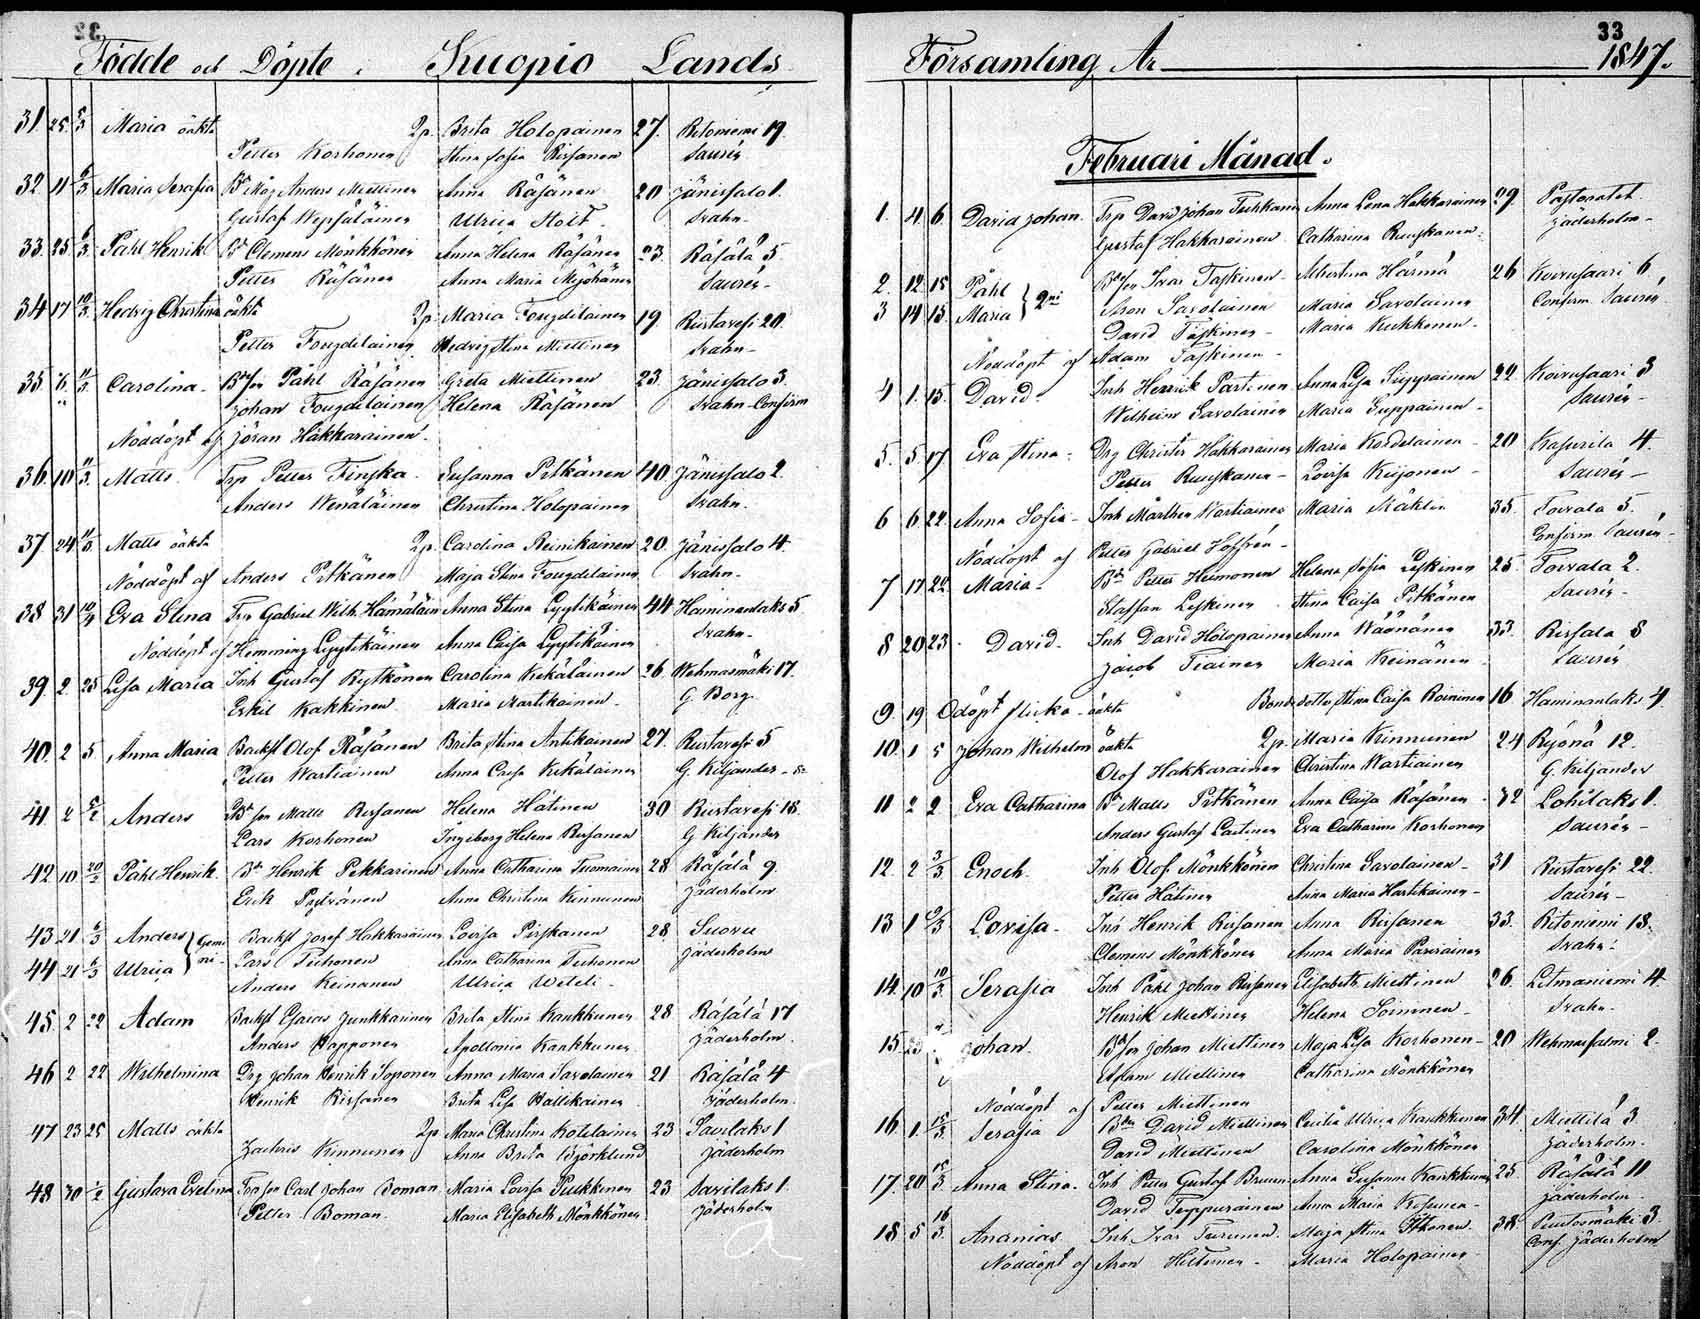 32
Födde och Döpte i Kuopio Lands
31 25 5/3 Maria oäkta 2p. Brita Holopainen 27. Ritoniemi 19.
Petter Korhonen Stina Sofia Rissanen Saurén
32 11 6/3 Maria Serafia Anders Miettinen Anna Räsänen 20 Jänissalo 1.
Gustaf Wepsäläinen Ulrica Holt. Svahn.
33. 25. 6/3 Påhl Henrik Clemens Mönkkönen Anna Helena Räsänen 23. Räsälä 5
Petter Räsänen Anna Maria Saurén
34 17 10/3 Hedvig Christina oäkta 2p. Maria Fougdilainen 19. Riistavesi 20.
Petter Fougdilainen Hedvig Stina Miettinen Svahn
35 Carolina Påhl Räsänen Greta Miettinen 23. Jänissalo 3.
Johan Fougdilainen Helena Räsänen Svahn Confirm
Nöddöpt af Jöran Hakkarainen.
36 10 11/3 Matts. Trp Petter Finska Susanna Pitkänen 40 Jänissalo 2.
Anders Wenäläinen Christina Holopainen Svahn.
37 24 Matts oäkta 2p. Carolina Reinikainen 20. Jänissalo 4.
Nöddöpt af Anders Pitkänen Maja Stina Fougdilainen Svahn
38 31 Eva Stina Gabriel Wilh. Hämäläin Anna Stina Lyytikäinen 44 Haminanlaks 5
Nöddöpt af Hemming Lyytikäinen Anna Caisa Lyytikäinen Svahn
39. 2 25 Lisa Maria Inh Gustaf Rytkönen Carolina Kekäläinen 26 Wehmasmäki 17.
Eskil Kakkinen Maria Martikainen G. Borg.
40. 2 5 Anna Maria Backst Olof Räsänen Brita Stina Antikainen 27. Riistavesi 5
Petter Wartiainen Anna Caisa Kekäläinen G. Kiljander
41 2 Anders Matts Rissanen Helena Hätinen 30 Riistavesi 18.
Lars Korhonen Ingeborg Helena Rissanen G. Kiljander
42 10 20/2 Påhl Henrik Henrik Pekkarinen Anna Catharina Tuomainen 28 Räsälä 9
Erik Anna Christina Kinnunen Jäderholm
43 21 6/3 Anders Gemi Backst Josef Hakkarainen Lovisa Pirskanen 28 Suovu
44 21 6/3 Ulrica ni Lars Tuhonen Anna Catharina Tuhonen Jäderholm
Anders Keinanen Ulrica
45. 2 22 Adam Backst Esaias Junkkarinen Brita Stina Kaukkunen 28 Räsälä 17
Anders Happonen Apollonia Kankkunen Jäderholm
46 2 22 Wilhelmina Drg Johan Henrik Soponen Anna Maria Savolainen 21 Räsälä 4
Henrik Rissanen Brita Lisa Hallikainen Jäderholm
47 23 25 Matts oäkta 2p Maria Christina Kotilainen 23 Savilaks 1
Kinnunen Anna Brita Björklund Jäderholm
48 30 1/2 Gustava Evelina Carl Johan Boman Maria Lovisa Puukkinen 23 Savilaks 1.
Petter Boman Maria Elisabeth Mönkkönen Jäderholm
33
Församling År 1847.
Februari Månad.
1. 4. 6 David Johan. Trp David Johan Anna Lena Hakkarainen 29. Pastoratet
Gustaf Hakkarainen Catharina Ruuskanen Jäderholm
2. 12. 15 Påhl Ivar Taskinen Albertina Härmä 26 Koivusaari 6
3 14 15. Maria Aron Savolainen Maria Savolainen Confirm. Saurén
David Taskinen Maria Kukkonen
Nöddöpt af Adam Taskinen
4 1. 15. David Inh Henrik Partinen Anna Lisa Suppainen 22 Koivusaari 3
Wilhelm Savolainen Maria Suppainen Saurén
5. 5. 17 Eva Stina Drg Christer Hakkarainen Maria Kordelainen 20 Kasurila 4.
Petter Ruuskanen Lovisa Keijonen Saurén
6 6 22 Anna Sofia Inh Mårthen Wartiainen Maria Mäklin 35. Toivala 5.
Nöddöpt af Petter Gabriel Hoffrén Confirm. Saurén
7 17 22 Maria Petter Heimonen Helena Sofia Leskinen 25. Toivala 2.
Staffan Leskinen Stina Caisa Pitkänen Saurén
8 20 23. David. Inh David Holopainen Anna Wäänänen 33. Rissala 8
Jacob Tiainen Maria Keinänen Saurén
9. 19 Odöpt flicka oäkta Bondedottr Stina Caisa Roininen 16 Haminanlaks 4
10. 1 5 Johan Wilhelm oäkta 2p. Maria Kinnunen 24 Ryönä 12.
Olof Hakkarainen Christina Wartiainen G. Kiljander
11 2 2 Eva Catharina Matts Pitkänen Anna Caisa Räsänen 32 Lohilaks 1.
Anders Gustaf Laitinen Eva Catharina Korhonen Saurén
12. 2 3/3 Enoch. Inh Olof Mönkkönen Christina Savolainen 31 Riistavesi 22.
Petter Hätinen Anna Maria Hartikainen Saurén
13 1 Lovisa Inh Henrik Rissanen Anna Rissanen 33. Ritoniemi 18
Clemens Mönkkönen Anna Maria Parviainen Svahn
14. 10 10/3 Serafia Inh Påhl Johan Rissanen Elisabeth Miettinen 26. Litmaniemi 4.
Henrik Miettinen Helena Soininen Svahn
15. Johan. Johan Miettinen Maja Lisa Korhonen 20 Wehmasalmi 2.
Adam Miettinen Catharina Mönkkönen
Nöddöpt af Petter Miettinen
16. 1. 15/3 Serafia David Miettinen Cecilia Ulrica Kaukkunen 34. Miettilä 3
David Miettinen Carolina Mönkkönen Jäderholm.
17. 20 15/3 Anna Stina. Inh Petter Gustaf Bruun Anna Susanna Kankkunen 25 Räsälä 11
David Teppurainen Anna Maria Jäderholm
18 5 16/3 Ananias Inh Ivar Turunen Maja Stina Ikonen 38. Puutosmäki 3.
Nöddöpt af Aron Hiltunen Maria Holopainen Conf. Jäderholm